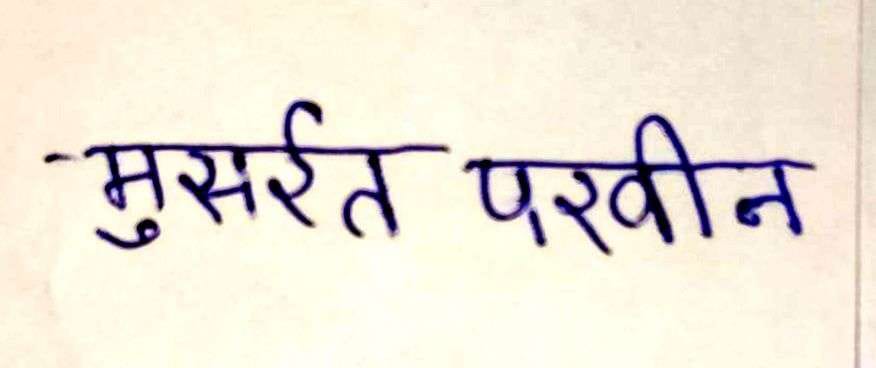 मुसर्रत परवीन